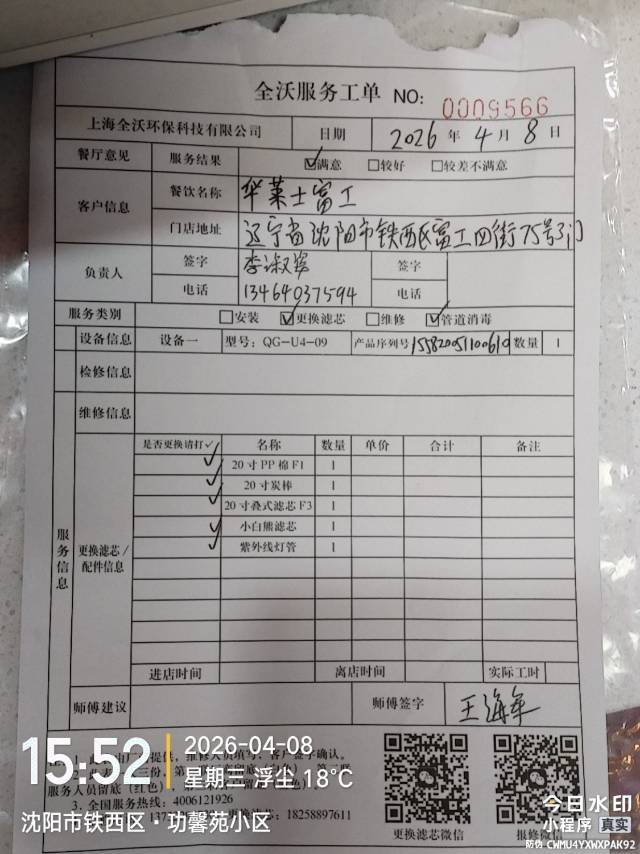 全沃服务工单 NO: 0009566
上海全沃环保科技有限公司 日期 2026 年 4 月 8 日
餐厅意见 服务结果 ☑满意 □较好 □较差不满意
客户信息 餐饮名称 华莱士富工
门店地址 辽宁省沈阳市铁西区富工四街75号3门
负责人 签字 签字
电话 13464037594 电话
服务类别 □安装 ☑更换滤芯 □维修 ☑管道消毒
设备信息 设备一 型号: QG-U4-09 产品序列号 数量 1
检修信息
维修信息
服务信息
更换滤芯/配件信息
是否更换请打✓ 名称 数量 单价 合计 备注
✓ 20寸PP棉F1 1
✓ 20寸炭棒 1
✓ 20寸叠式滤芯F3 1
✓ 小白熊滤芯 1
✓ 紫外线灯管 1
进店时间 离店时间 实际工时
师傅建议 师傅签字 王海军
服务人员留底(红色)
3. 全国服务热线: 4006121926
18258897611
更换滤芯微信 报修微信
15:52
2026-04-08
星期三 浮尘 18℃
沈阳市铁西区·功馨苑小区
今日水印
小程序 真实
防伪 CWMU4YXWXPAK92